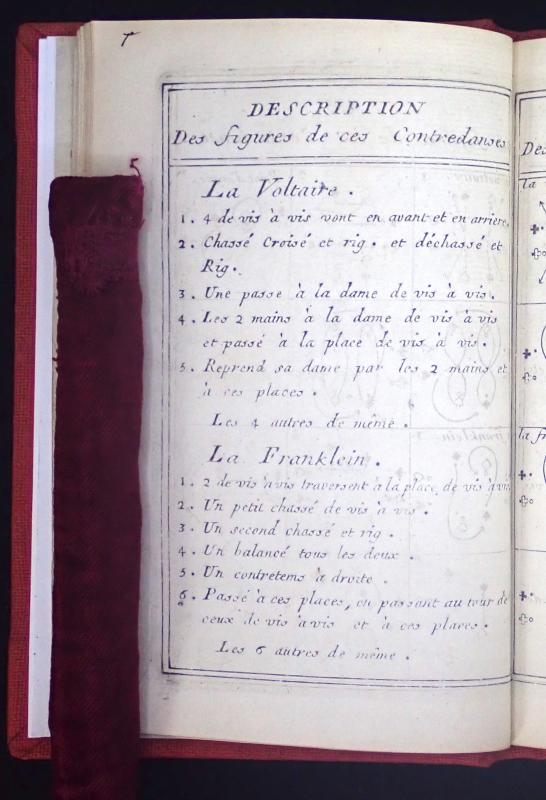 5
DESCRIPTION
Des figures de ces Contredanses
La Voltaire.
1. 4 de vis à vis vont en avant et en arriere.
2. Chassé Croisé et rig. et déchassé et
Rig.
3. Une passe à la dame de vis à vis.
4. Les 2 mains à la dame de vis à vis
et passé à la place de vis à vis.
5. Reprend sa dame par les 2 mains et
à ces places.
Les 4 autres de même.
La Franklein.
1. 2 de vis à vis traversent à la place de vis à vis
2. Un petit chassé de vis à vis.
3. Un second chassé et rig.
4. Un balancé tous les deux.
5. Un contretems à droite.
6. Passé à ces places, en passant au tour de
ceux de vis à vis et à ces places.
Les 6 autres de même.
Des
la
la fr